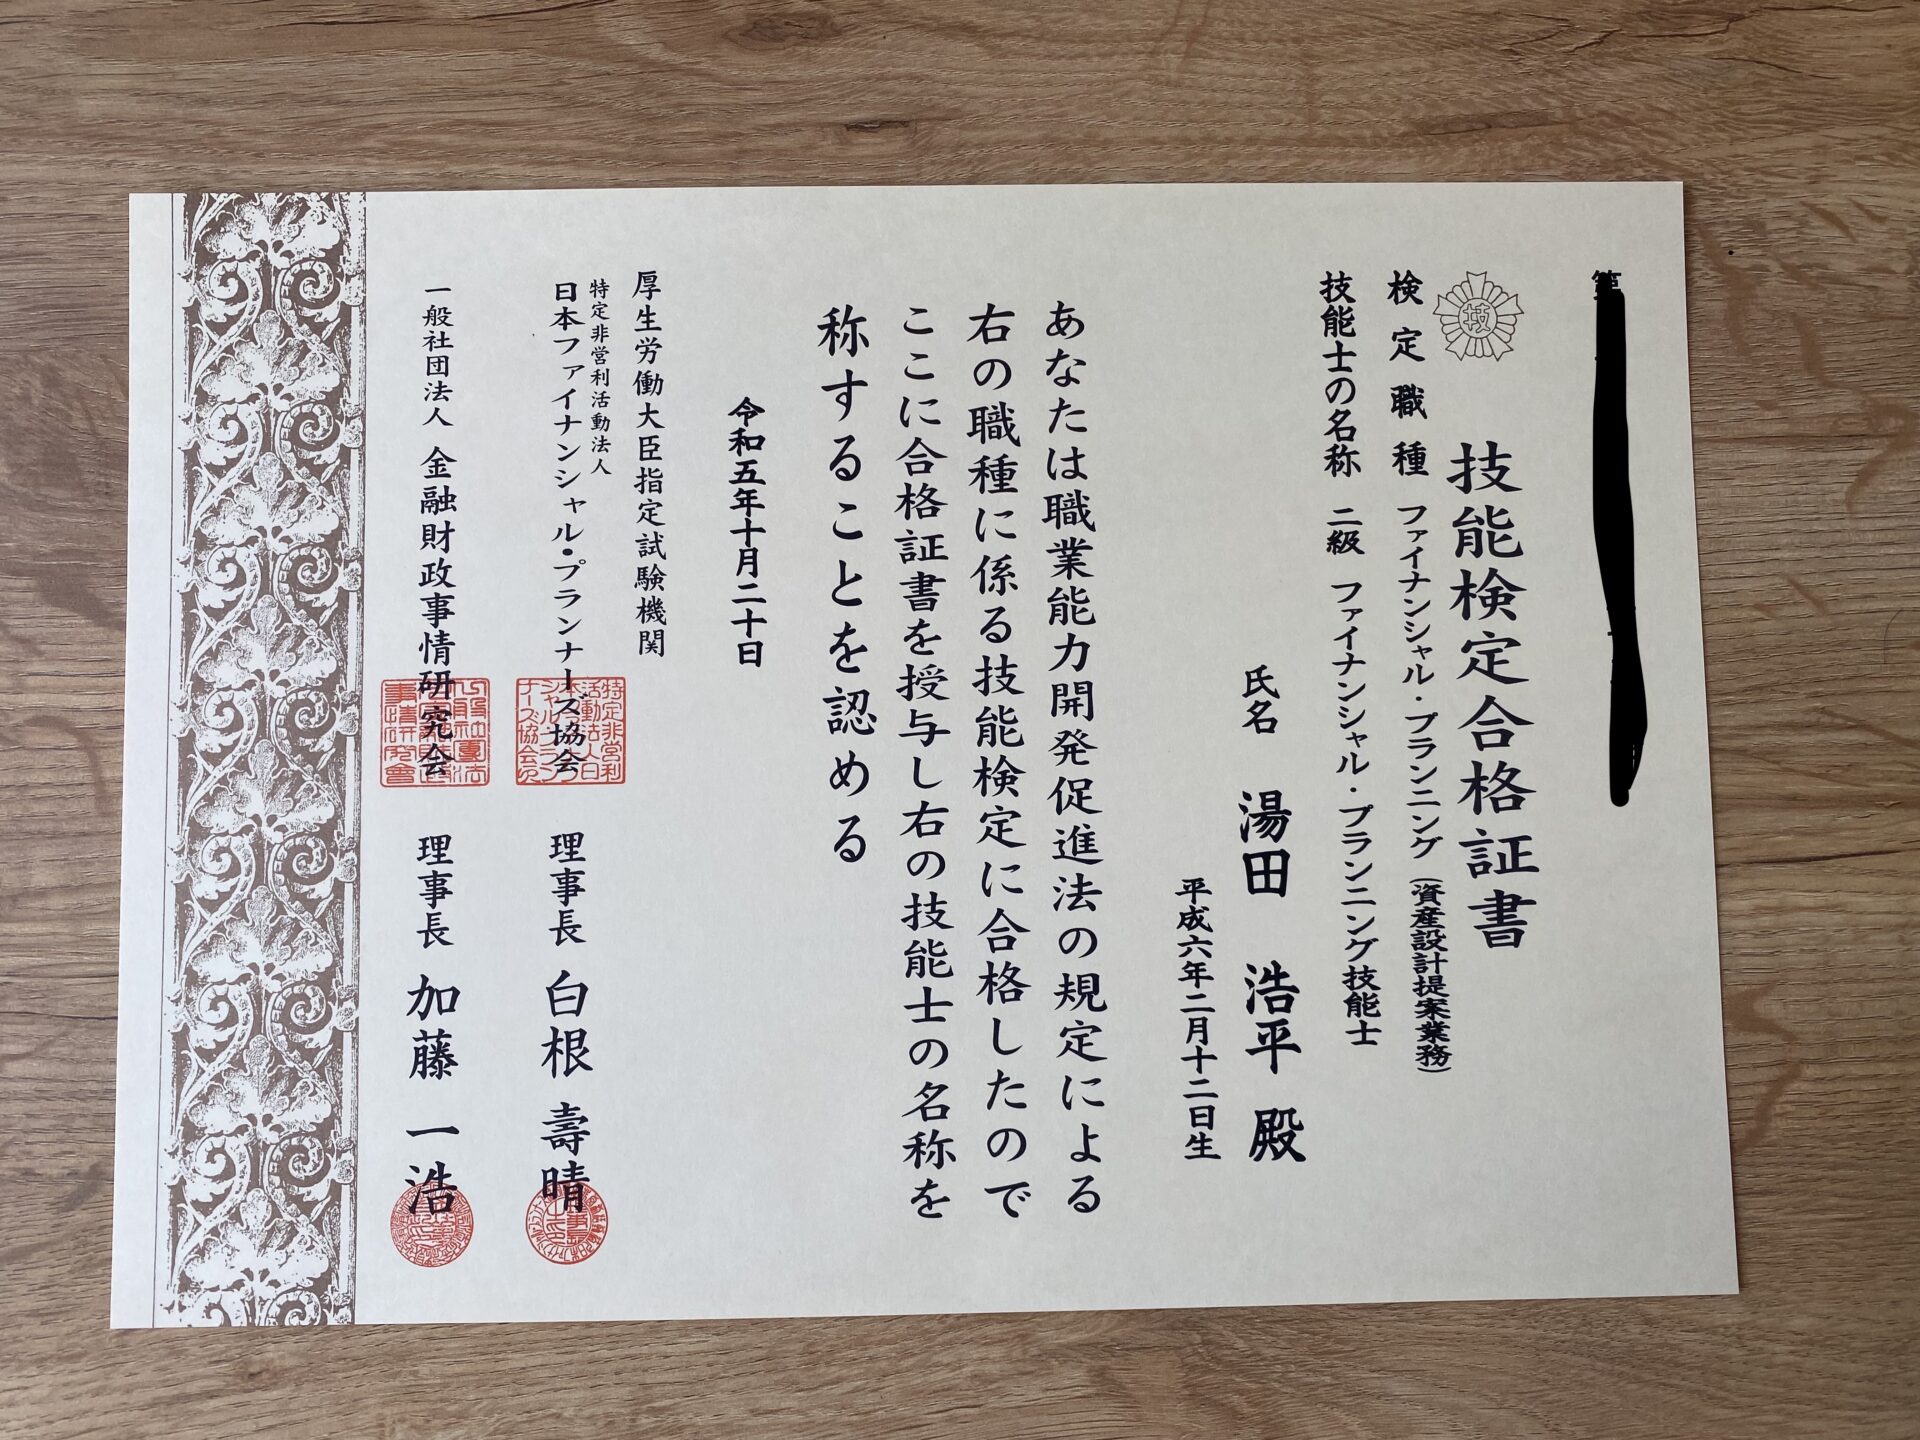 第
技
技能検定合格証書
検定職種 ファイナンシャル・プランニング(資産設計提案業務)
技能士の名称 二級 ファイナンシャル・プランニング技能士
氏名 湯田 浩平 殿
平成六年二月十二日生
あなたは職業能力開発促進法の規定による
右の職種に係る技能検定に合格したので
ここに合格証書を授与し右の技能士の名称を
称することを認める
令和五年十月二十日
厚生労働大臣指定試験機関
特定非営利活動法人
日本ファイナンシャル・プランナーズ協会 理事長 白根 壽晴
一般社団法人 金融財政事情研究会 理事長 加藤 一浩